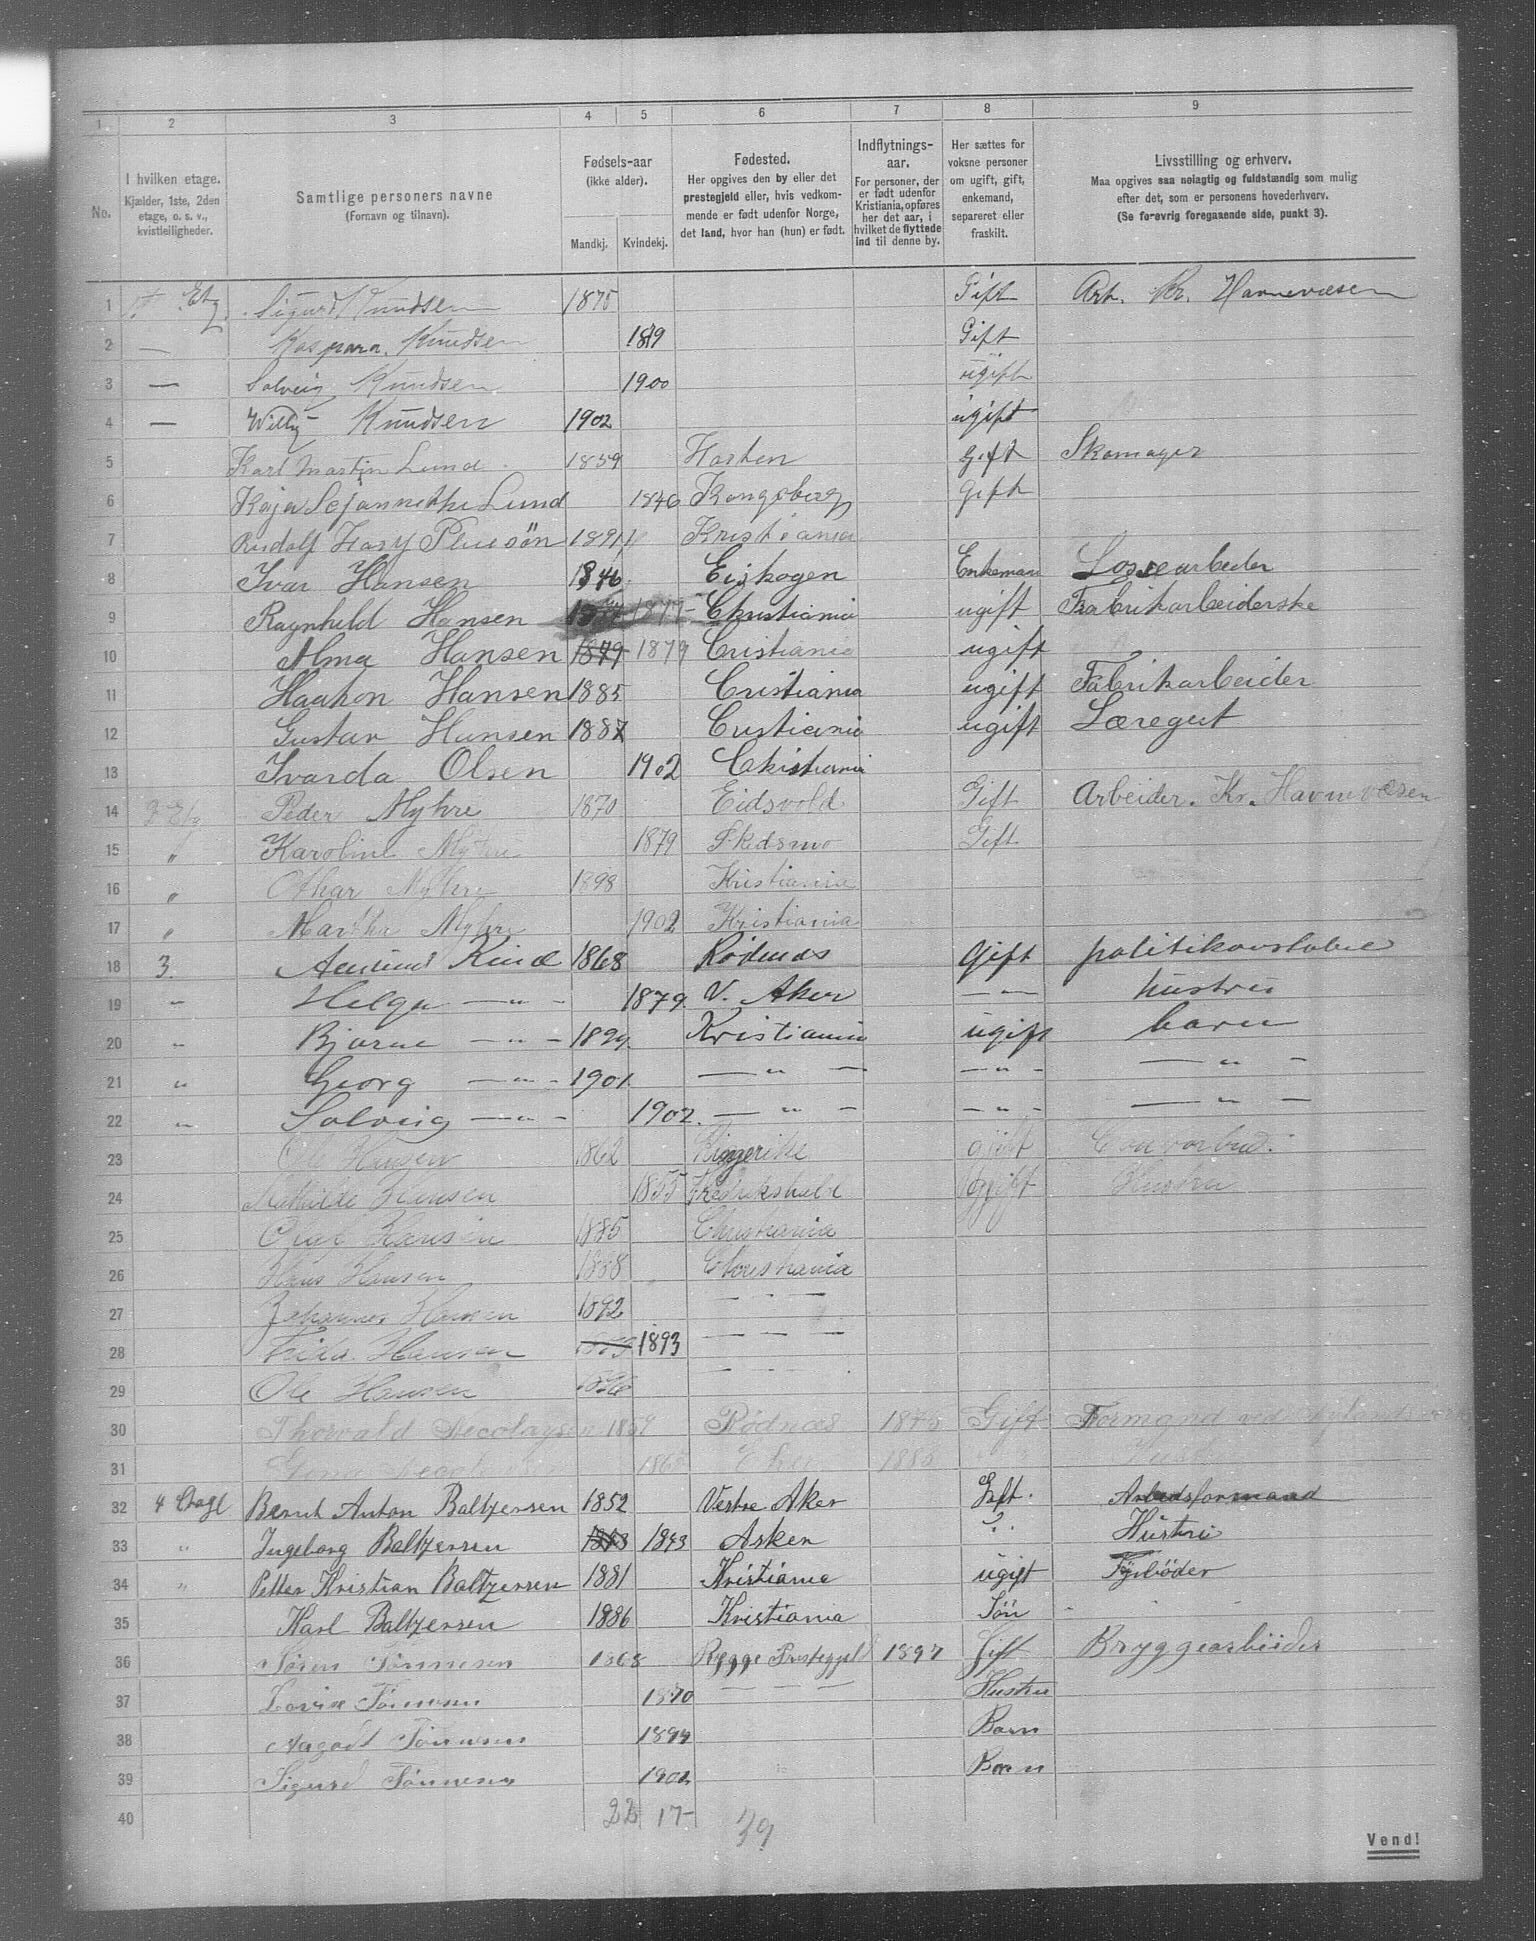 1 2 3 4 5 6 7 8 9
No. I hvilken etage. Kjælder, 1ste, 2den etage, o. s. v., kvistleiligheder. Samtlige personers navne (Fornavn og tilnavn). Fødsels-aar (ikke alder). Mandkj. Kvindekj. Fødested. Her opgives den by eller det prestegjeld eller, hvis vedkommende er født udenfor Norge, det land, hvor han (hun) er født. Indflytnings-aar. For personer, der er født udenfor Kristiania, opføres her det aar, i hvilket de flyttede ind til denne by. Her sættes for voksne personer om ugift, gift, enkemand, separeret eller fraskilt. Livsstilling og erhverv. Maa opgives saa nøiagtig og fuldstændig som mulig efter det, som er personens hovederhverv. (Se forøvrig foregaaende side, punkt 3).
1 Etg. Sigurd Knudsen 1875 Gift Arb. Kr. Havnevæsen
2 — Kaspara Knudsen 1879 Gift
3 — Solveig Knudsen 1900 ugift
4 — Willy Knudsen 1902 ugift
5 Karl Martin Lund 1859 Horten gift Skomager
6 Kaja Lund 1846 Kongsberg gift
7 Rudolf Kristiania
8 Ivar Hansen 1846 Eiskogen Enkeman Lossearbeider
9 Ragnhild Hansen 1877 Christiania ugift Fabrikarbeiderske
10 Alma Hansen 1879 1879 Cristiania ugift
11 Haakon Hansen 1885 Cristiania ugift Fabrikarbeider
12 Gustav Hansen 1887 Cristiania ugift Læregut
13 Ivarda Olsen 1902 Christiania
14 2 Etg Peder Myhre 1870 Eidsvold Gift Arbeider. Kr. Havnevæsen
15 " Karoline Myhre 1879 Skedsmo Gift
16 " Othar Myhre 1898 Kristiania
17 " Martha Myhre 1902 Kristiania
18 3. Kind 1868 Rødenes Gift politikonstabel
19 " Helga — " — 1879. V. Aker — " — hustru
20 " Bjarne — " — 1899. Kristiania ugift barn
21 " Georg — " — 1901. — " — — " — — " —
22 " Solveig — " — 1902. — " — — " — — " —
23 Ole Hansen 1862 Ringerike gift
24 Mathilde Hansen 1855 Fredrikshald gift Hustru
25 Oluf Hansen 1885 Christiania
26 Hans Hansen 1888 Christiania
27 Johannes Hansen 1892 — — —
28 Frida Hansen 1893 — — —
29 Ole Hansen — — —
30 Thorvald Necolaysen 1859 Rødnæs 1876 Gift Formand ved
31 Eker 1886
32 4 Etage Bernt Anton Baltzersen 1852 Vestre Aker Gift. Arbedsformand
33 " Ingeborg Baltzersen 1843 Asker Hustru
34 " Petter Kristian Baltzersen 1881 Kristiania ugift Fyrbøder
35 Karl Baltzersen 1886 Kristiania Søn
36 Søren Tønnesen 1868 Rygge Prestegjel 1897 Gift Bryggearbeider
37 Lovise Tønnesen 1870 — — — Hustru
38 Tønnesen Barn
39 Sigurd Tønnesen 1902 Barn
40 22 17 39
Vend!